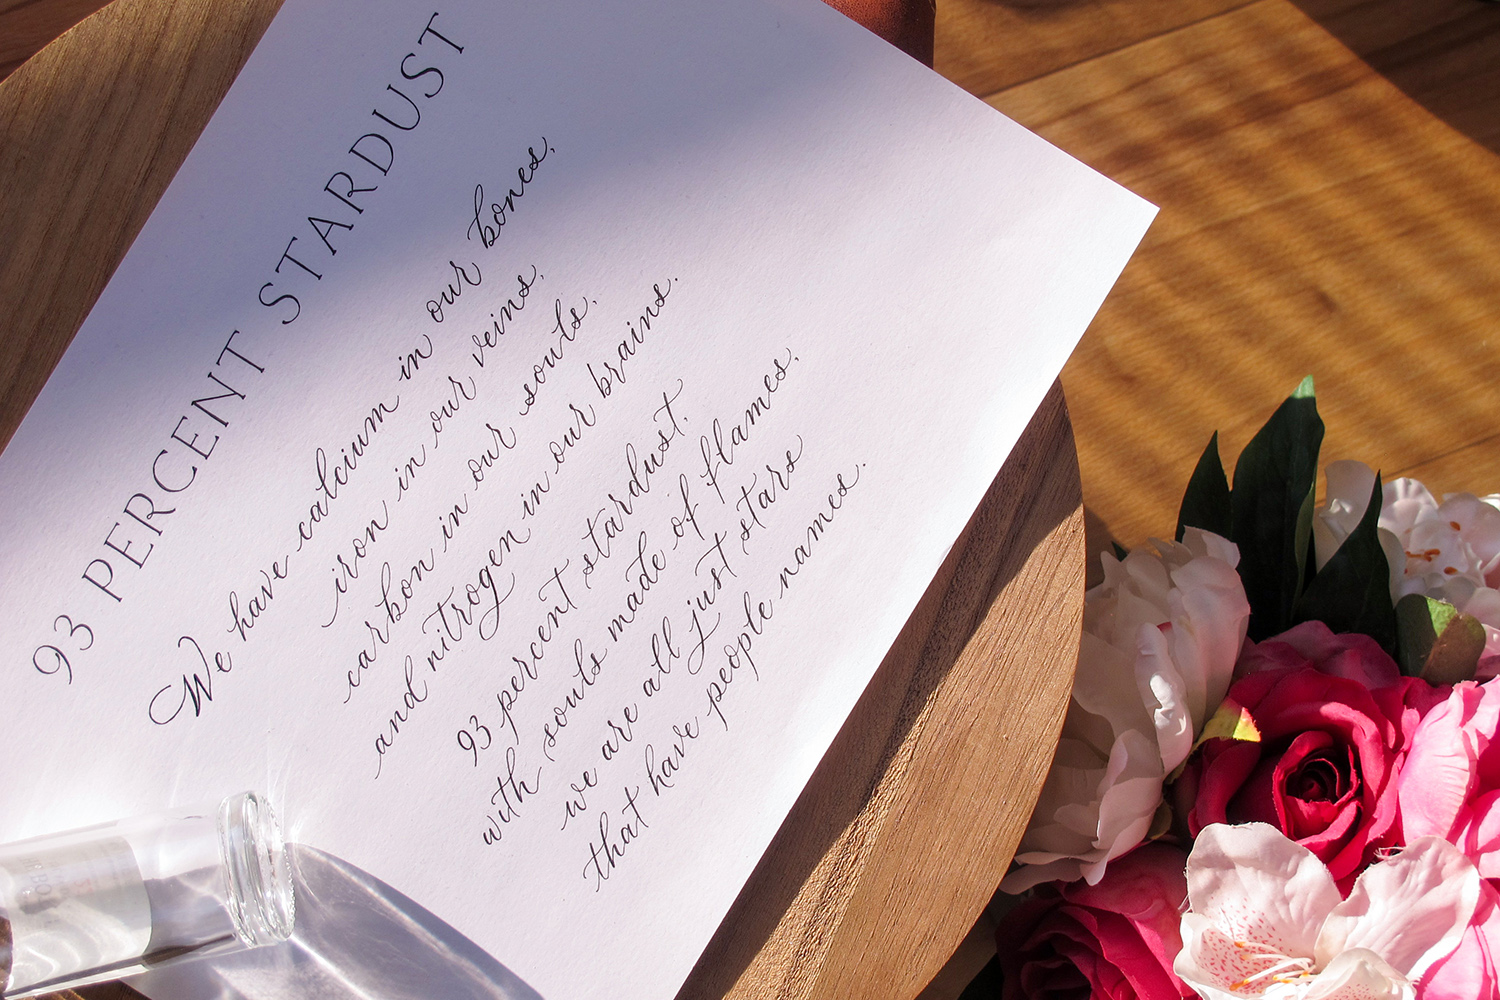 93 PERCENT STARDUST
We have calcium in our bones,
iron in our veins,
carbon in our souls,
and nitrogen in our brains.
93 percent stardust,
with souls made of flames,
we are all just stars
that have people names.